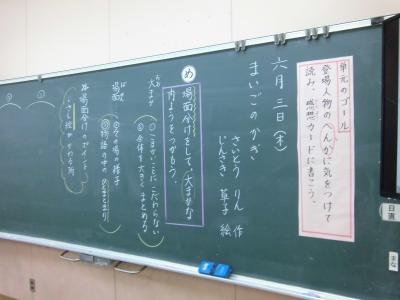 単元のゴール
登場人物のへんかに気をつけて
読み、感想カードに書こう。
六月三日(木)
まいごのかぎ
さいとう りん 作
じんさき 草子 絵
め
場面分けをして、大まかな
内ようをつかもう。
大まか
①こまかいことに、こだわらない
②全体を大きくまとめる
場面
①その場の様子
②物語の中のひとまとまり
場面分けのポイント
さし絵
日直